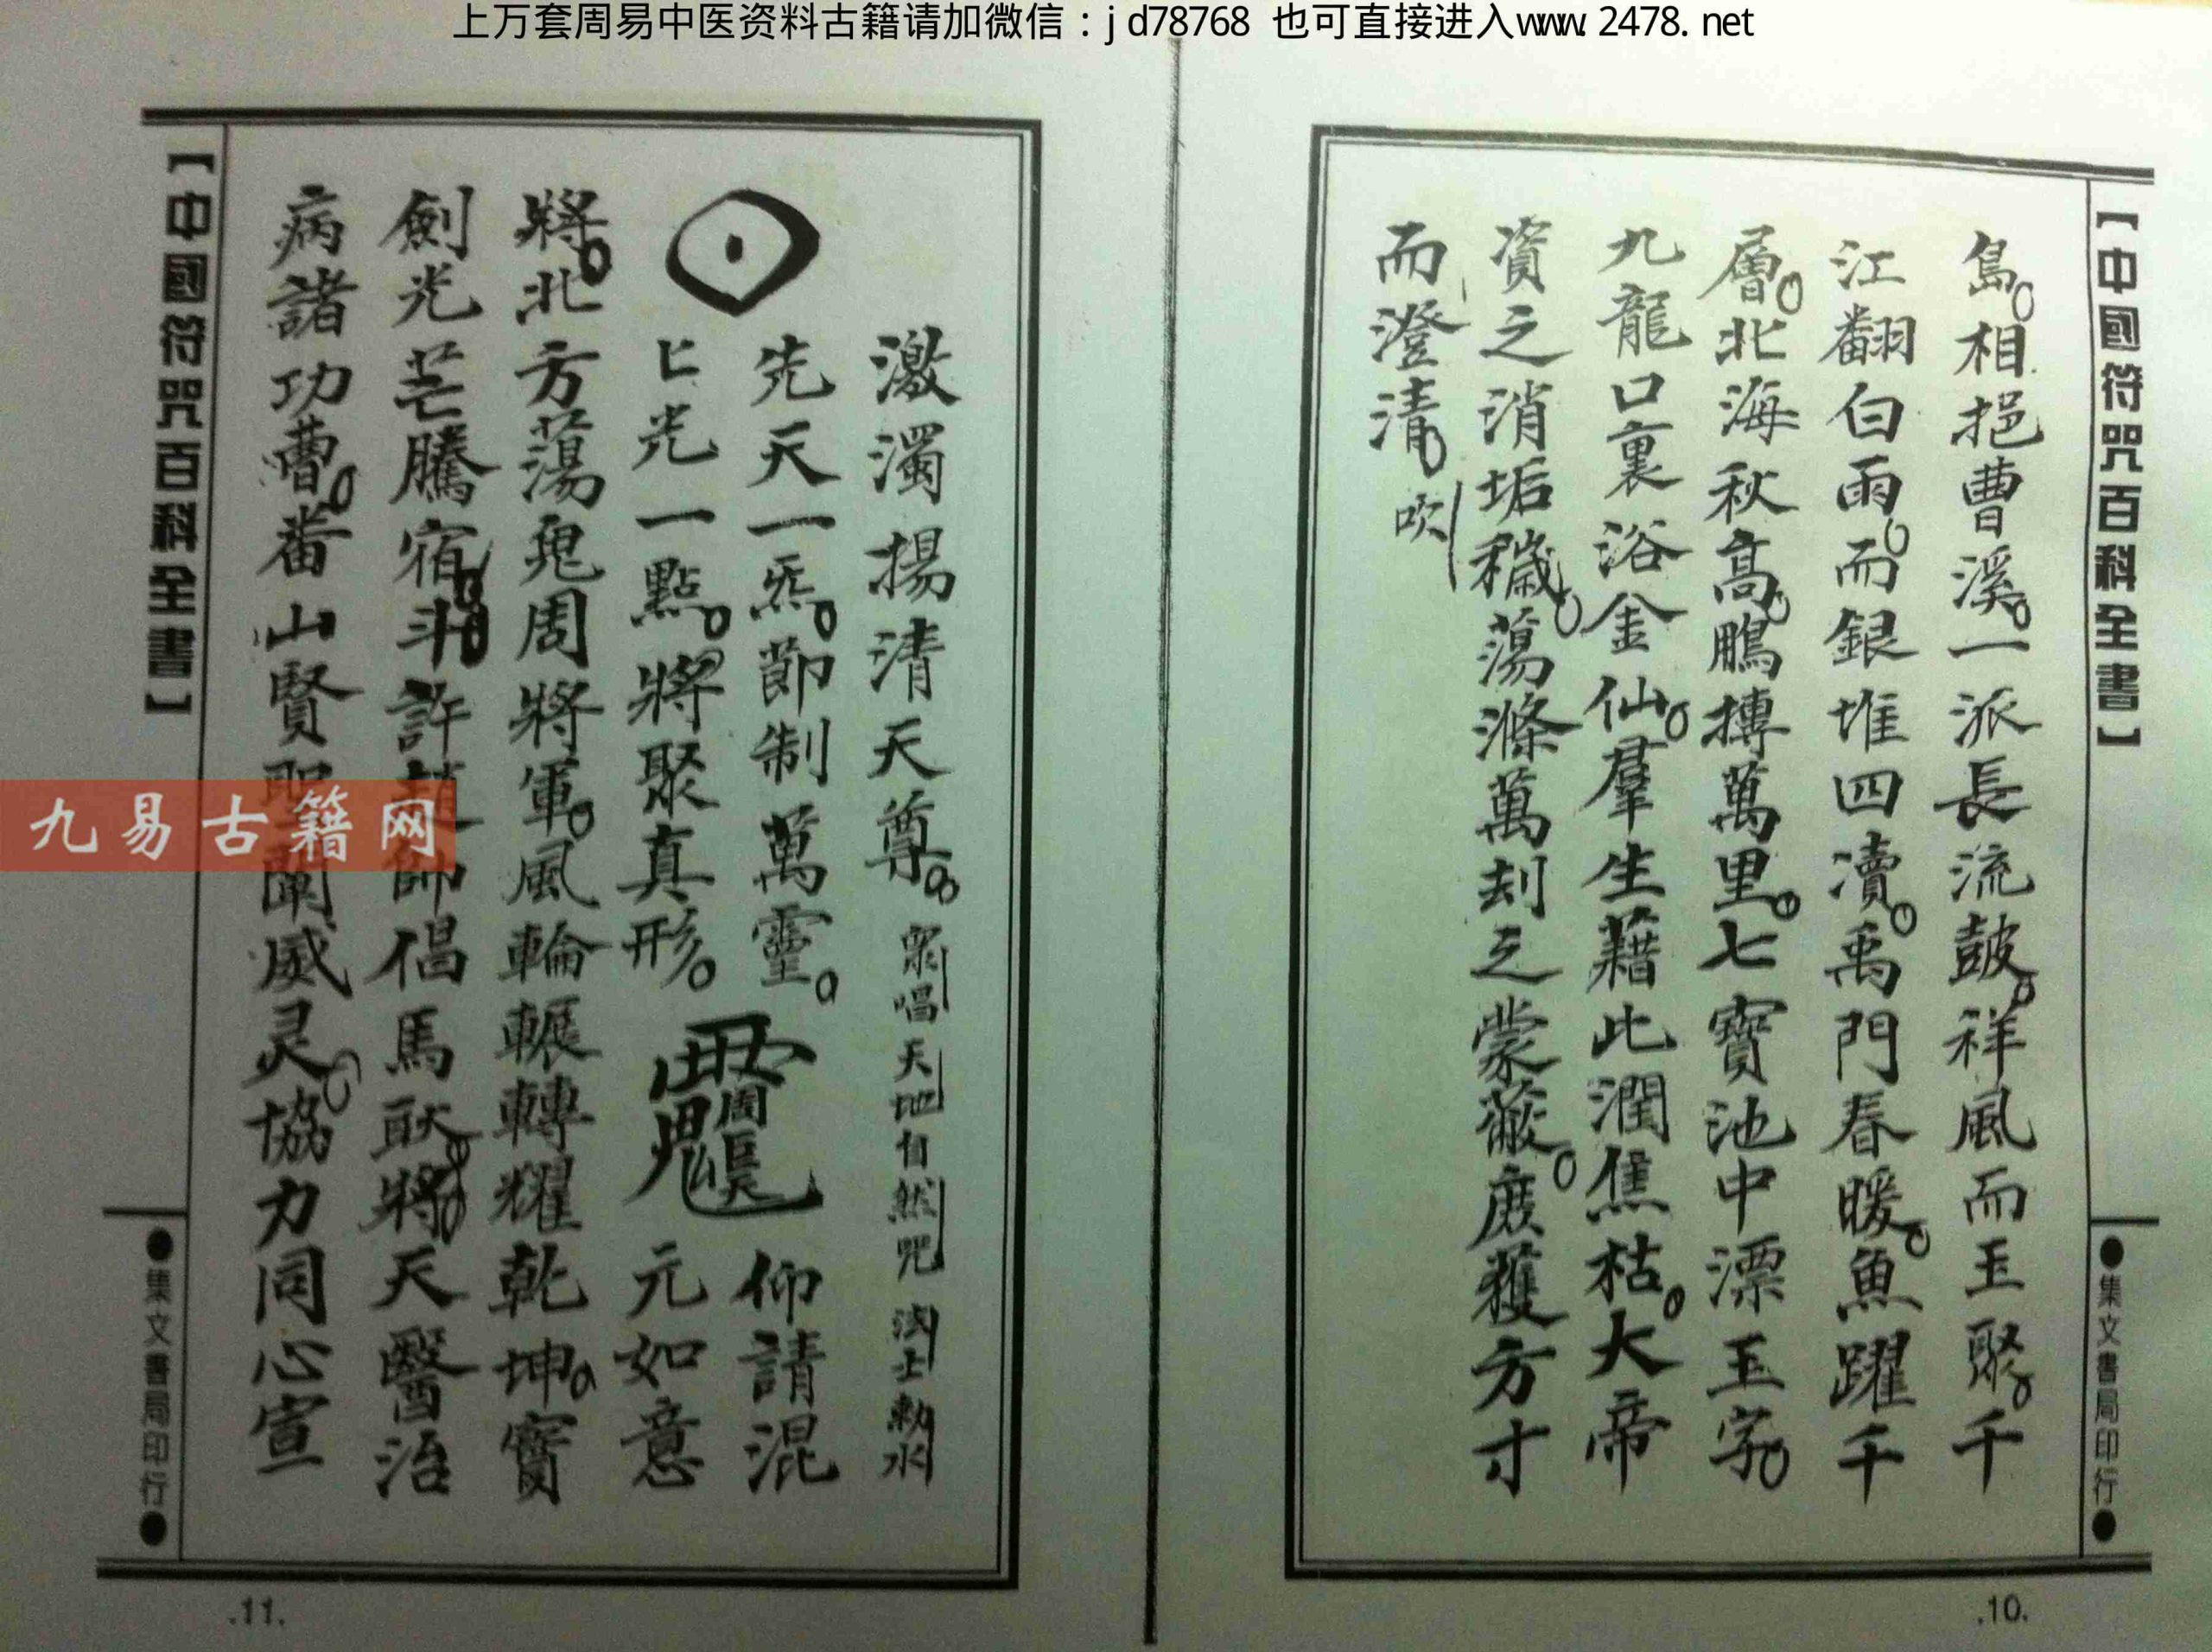 上万套周易中医资料古籍请加微信：jd78768 也可直接进入www.2478.net
【中國符咒百科全書】
●集文書局印行●
島。相挹曹溪。一派長流鼓。祥風而玉聚。千
江翻白雨。而銀堆四瀆。禹門春暖。魚躍千
層。北海秋高。鵬摶萬里。七寶池中漂玉字。
九龍口裏浴金仙。羣生藉此潤焦枯。大帝
資之消垢穢。蕩滌萬刦之蒙蔽。庶獲方寸
而澄清。吹
.10.
激濁揚清天尊。眾唱天地自然咒 法士勅水
先天一炁。節制萬靈。 仰請混
匕光一點。將聚真形。 元如意
將。北方蕩鬼周將軍。風輪輾轉耀乾坤。寶
劍光芒騰宿斗。許趙帥倡馬耿將。天醫治
病諸功曹。番山賢聖闡威灵。協力同心宣
【中國符咒百科全書】
●集文書局印行●
.11.
九易古籍网